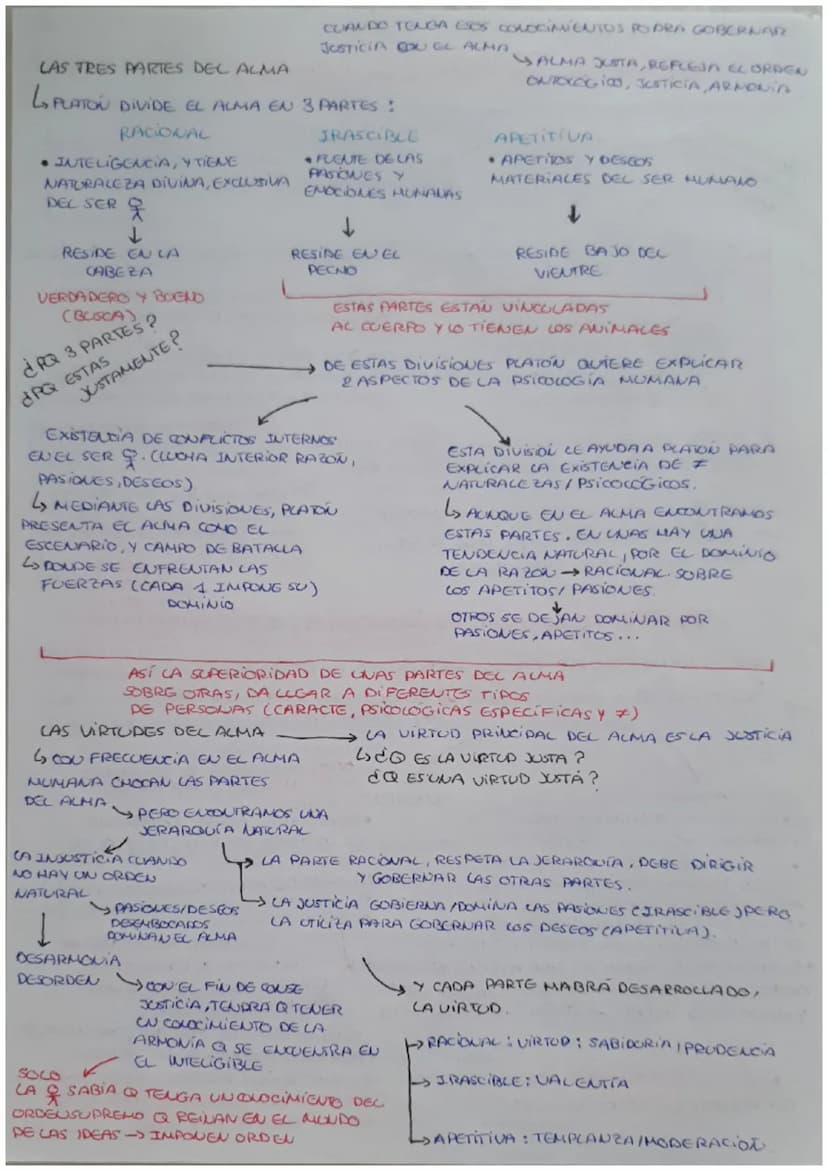 CUANDO TENGA ESOS CONOCIMIENTOS PODRA GOBERNAR
JUSTICIA CON EL ALMA
↳ ALMA JUSTA, REFLEJA EL ORDEN
ONTOLÓGICO, JUSTICIA, ARMONÍA
LAS TRES PARTES DEL ALMA
↳ PLATÓN DIVIDE EL ALMA EN 3 PARTES:
RACIONAL
• INTELIGENCIA, Y TIENE
NATURALEZA DIVINA, EXCLUSIVA
DEL SER
↓
RESIDE EN LA
CABEZA
VERDADERO Y BUENO
(BUSCA)
IRASCIBLE
• FUENTE DE LAS
PASIONES Y
EMOCIONES HUMANAS
↓
RESIDE EN EL
PECHO
APETITIVA
• APETITOS Y DESEOS
MATERIALES DEL SER HUMANO
↓
RESIDE BAJO DEL
VIENTRE
ESTAS PARTES ESTAN VINCULADAS
AL CUERPO Y LO TIENEN LOS ANIMALES
¿PQ 3 PARTES?
¿PQ ESTAS
JUSTAMENTE?
→ DE ESTAS DIVISIONES PLATÓN QUIERE EXPLICAR
2 ASPECTOS DE LA PSICOLOGÍA HUMANA
EXISTENCIA DE CONFLICTOS INTERNOS
EN EL SER . (LUCHA INTERIOR RAZÓN,
PASIONES, DESEOS)
↳ MEDIANTE LAS DIVISIONES, PLATÓN
PRESENTA EL ALMA COMO EL
ESCENARIO, Y CAMPO DE BATALLA
↳ DONDE SE ENFRENTAN LAS
FUERZAS (CADA 1 IMPONE SU)
DOMINIO
ESTA DIVISIÓN LE AYUDA A PLATÓN PARA
EXPLICAR LA EXISTENCIA DE ≠
NATURALEZAS / PSICOLÓGICOS.
↳ AUNQUE EN EL ALMA ENCONTRAMOS
ESTAS PARTES. EN UNAS HAY UNA
TENDENCIA NATURAL, POR EL DOMINIO
DE LA RAZÓN → RACIONAL. SOBRE
LOS APETITOS / PASIONES.
↓
OTROS SE DEJAN DOMINAR POR
PASIONES, APETITOS...
ASÍ LA SUPERIORIDAD DE UNAS PARTES DEL ALMA
SOBRE OTRAS, DA LUGAR A DIFERENTES TIPOS
DE PERSONAS (CARACTE, PSICOLÓGICAS ESPECÍFICAS Y ≠)
LAS VIRTUDES DEL ALMA → LA VIRTUD PRINCIPAL DEL ALMA ES LA JUSTICIA
↳ ¿Q ES LA VIRTUD JUSTA?
¿Q ES UNA VIRTUD JUSTA?
↳ CON FRECUENCIA EN EL ALMA
HUMANA CHOCAN LAS PARTES
DEL ALMA
↘ PERO ENCONTRAMOS UNA
JERARQUÍA NATURAL
→ LA PARTE RACIONAL, RESPETA LA JERARQUÍA. DEBE DIRIGIR
Y GOBERNAR LAS OTRAS PARTES.
→ LA JUSTICIA GOBIERNA / DOMINA LAS PASIONES (IRASCIBLE) PERO
LA UTILIZA PARA GOBERNAR LOS DESEOS (APETITIVA).
LA INJUSTICIA CUANDO
NO HAY UN ORDEN
NATURAL
↘ PASIONES/DESEOS
DESEMBOCADOS
DOMINAN EL ALMA
↓
DESARMONÍA
DESORDEN
↘ CON EL FIN DE CONSE
JUSTICIA, TENDRA Q TENER
UN CONOCIMIENTO DE LA
ARMONÍA Q SE ENCUENTRA EN
EL INTELIGIBLE
SOLO
LA SABIA Q TENGA UN CONOCIMIENTO DEL
ORDEN SUPREMO Q REINAN EN EL MUNDO
DE LAS IDEAS → IMPONEN ORDEN
↘ Y CADA PARTE HABRÁ DESARROLLADO,
LA VIRTUD.
→ RACIONAL: VIRTUD: SABIDURÍA / PRUDENCIA
→ IRASCIBLE: VALENTÍA
→ APETITIVA: TEMPLANZA/MODERACIÓN